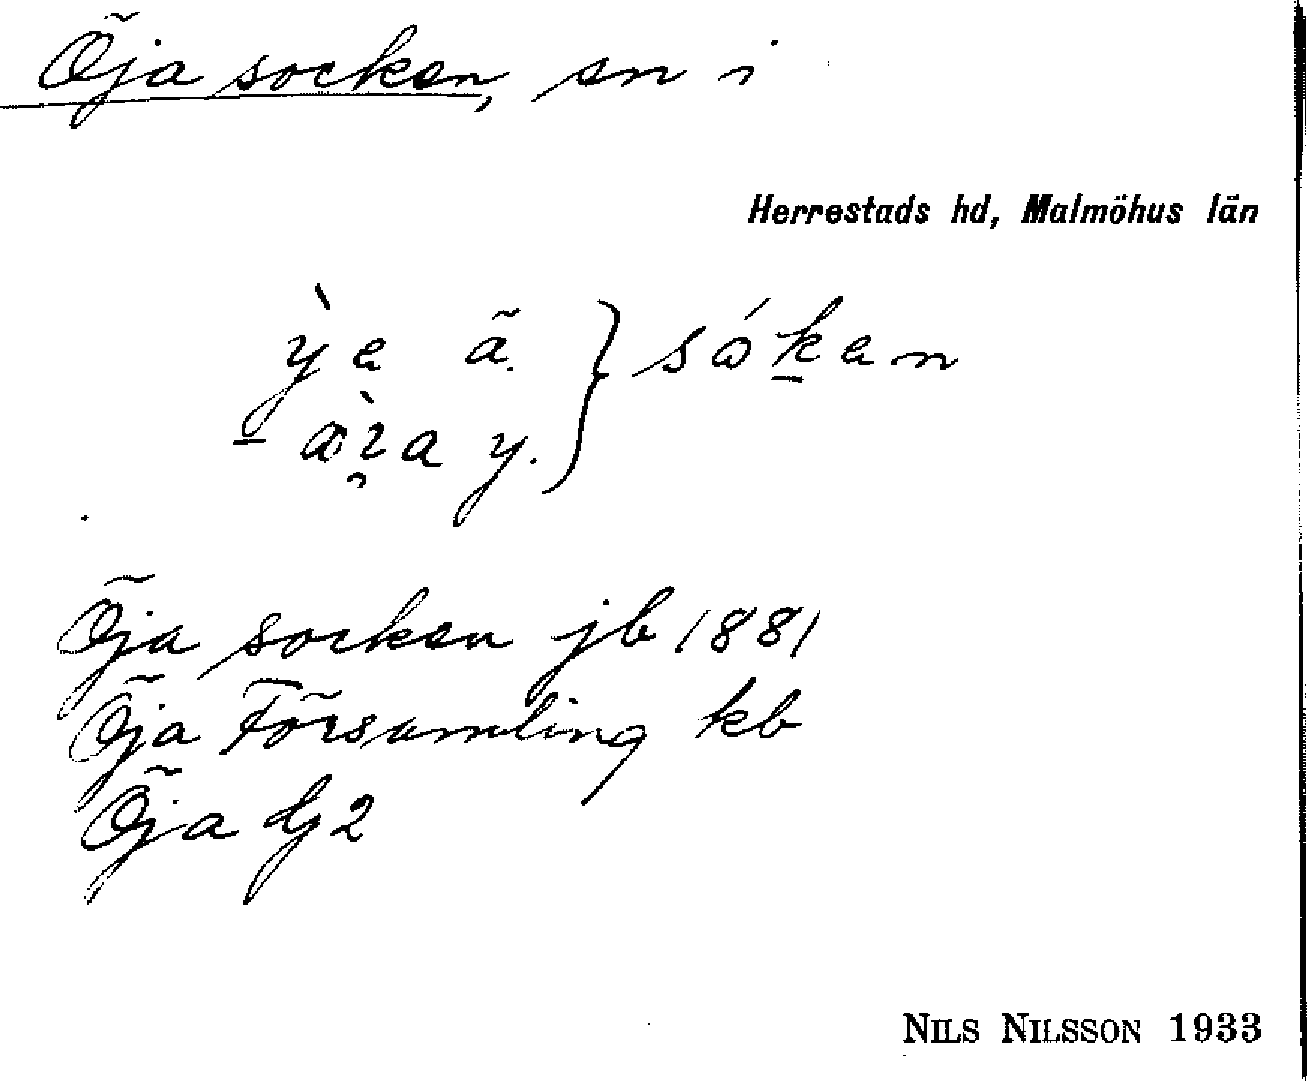 Öja socken, sn i
Herrestads hd, Malmöhus län
ỳ̠e ä. } só̠ken
òı̯a y.
Öja socken jb 1881
Öja Församling kb
Öja Gj2
NILS NILSSON 1933